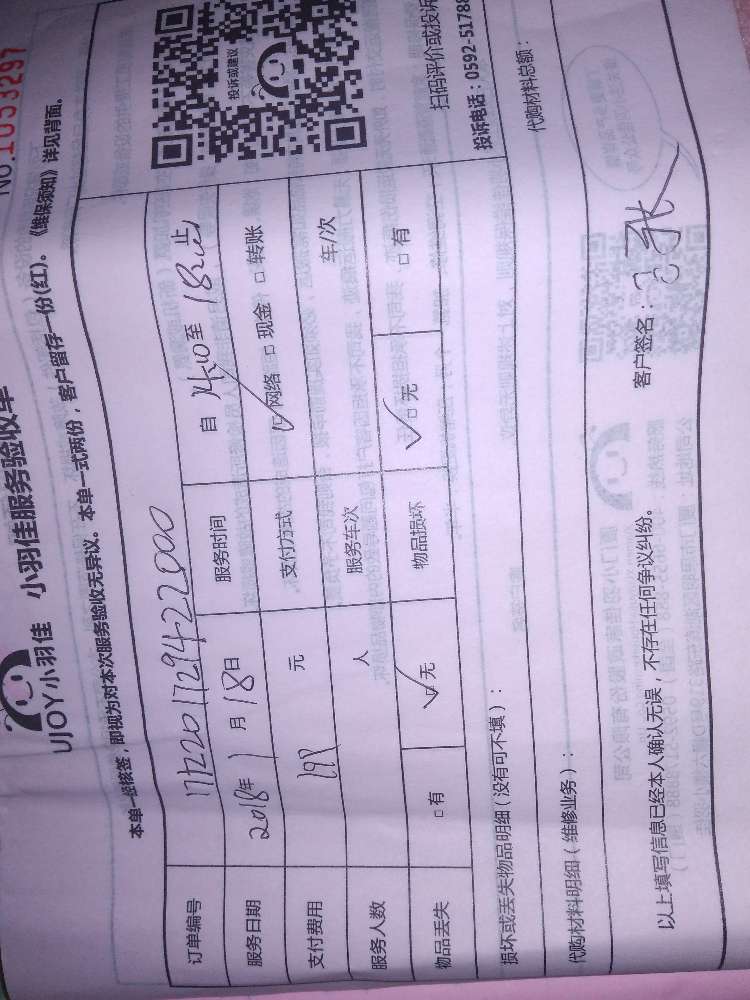 NO.1053297
UJOY小羽佳 小羽佳服务验收单
本单一经核签，即视为对本次服务验收无异议。本单一式两份，客户留存一份(红)。《维保须知》详见背面。
订单编号 1712201729422000
服务日期 2018年 1 月 18日 服务时间 自 14:10 至 18:00 止
支付费用 199 元 支付方式 ☑网络 □现金 □转账
服务人数 人 服务车次 车/次
物品丢失 □有 ☑无 物品损坏 ☑无 □有
投诉或建议
扫码评价或投诉
投诉电话：0592-51788
损坏或丢失物品明细（没有可不填）：
代购材料明细（维修业务）： 代购材料总额：
以上填写信息已经本人确认无误，不存在任何争议纠纷。 客户签名：